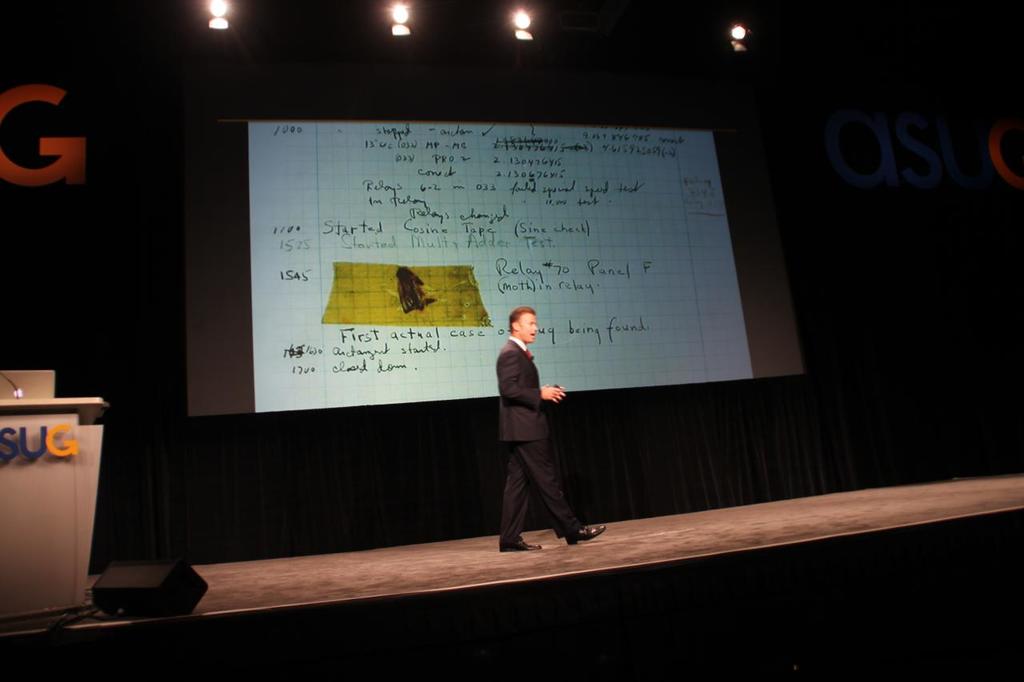 G
asuG
1000 stopped - arctan ✓
13°uc (032) MP - MC
(033) PRO 2 2.130476415
conect 2.130676415
Relays 6-2 in 033 failed special speed test
In Relay
Relays changed
1100 Started Cosine Tape (Sine check)
1525 Started Mult + Adder Test.
1545 Relay #70 Panel F
(moth) in relay.
First actual case bug being found.
1630 arctangent started.
1700 closed down.
SUG